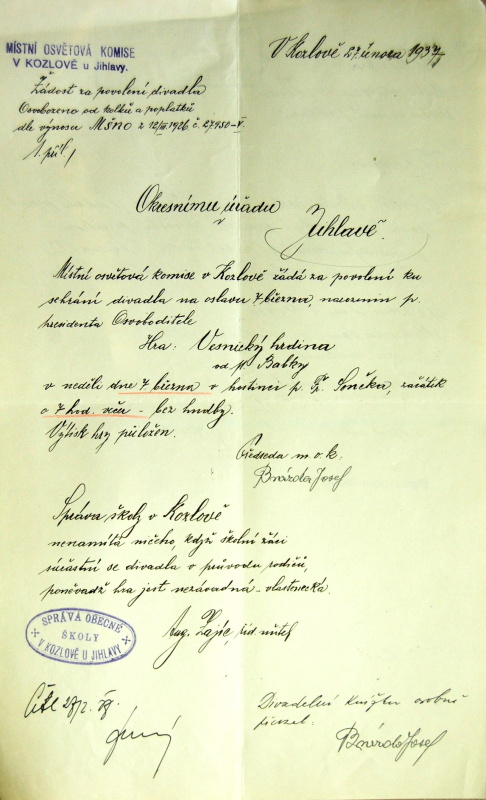 MÍSTNÍ OSVĚTOVÁ KOMISE
V KOZLOVĚ u Jihlavy.
V Kozlově 27. února 1937
Žádost za povolení divadla
Osvobozeno od kolků a poplatků
dle výnosu MŠNO z 12/III. 1926 č. 27950-V.
1 příl.
Okresnímu úřadu
v
Jihlavě.
Místní osvětová komise v Kozlově žádá za povolení ku
sehrání divadla na oslavu 7 března, narozenin p.
presidenta Osvoboditele
Hra: Vesnický hrdina
od Babky
v neděli dne 7 března v hostinci p. Fr. Součka, začátek
o 7 hod. večer - bez hudby.
Výtisk hry přiložen.
Předseda m. o. k.
Brázda Josef
Správa školy v Kozlově
nenamítá ničeho, když školní žáci
účastní se divadla v průvodu rodičů,
poněvadž hra jest nezávadná - vlastenecká.
Aug. Zajíc, říd. učitel
SPRÁVA OBECNÉ
ŠKOLY
V KOZLOVĚ U JIHLAVY
27/2.
Divadelní knížku osobně
převzal.
Brázda Josef